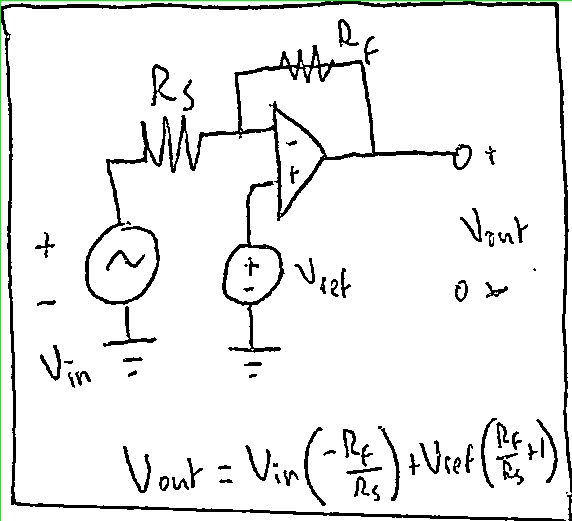 R_f
R_s
-
+
+
+
V_out
+
-
+
-
V_ref
o -
V_in
V_out = V_in(-R_f/R_s) + V_ref(R_f/R_s + 1)